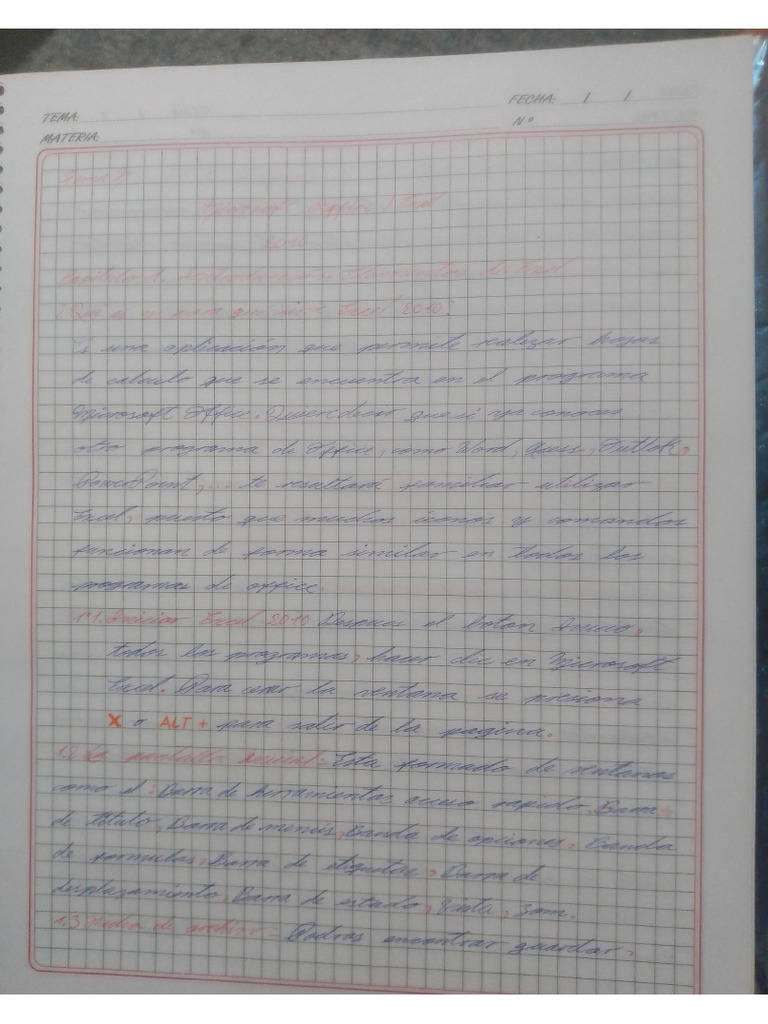 FECHA: / /
TEMA:
Nº
MATERIA:
Tema I
Microsoft Office / Excel
2010
Capítulo 1. Introducción. Elementos de Excel
¿Qué es y para que sirve Excel 2010?
Es una aplicación que permite realizar hojas
de calculo que se encuentra en el programa
Microsoft Office. Quiere decir que si ya conoces
otro programa de Office, como Word, Outlok,
PowerPoint, ... te resultará familiar utilizar
Excel, puesto que muchos iconos y comandos
funcionan de forma similar en todos los
programas de office.
1.1. Iniciar Excel 2010 Despues el boton Inicio,
todos los programas, hacer clic en Microsoft
Excel. Para cerrar la ventana se presiona
X o ALT + para salir de la pagina.
1.2 La pantalla inicial. Esta formado de ventanas
como el: Barra de herramientas acceso rapido, Barra
de titulo, Barra de menús, Banda de opciones, Banda
de formulas, Barra de etiquetas, Barra de
desplazamiento, Barra de estado, zom.
1.3 de archivo - Podras encontrar guardar,